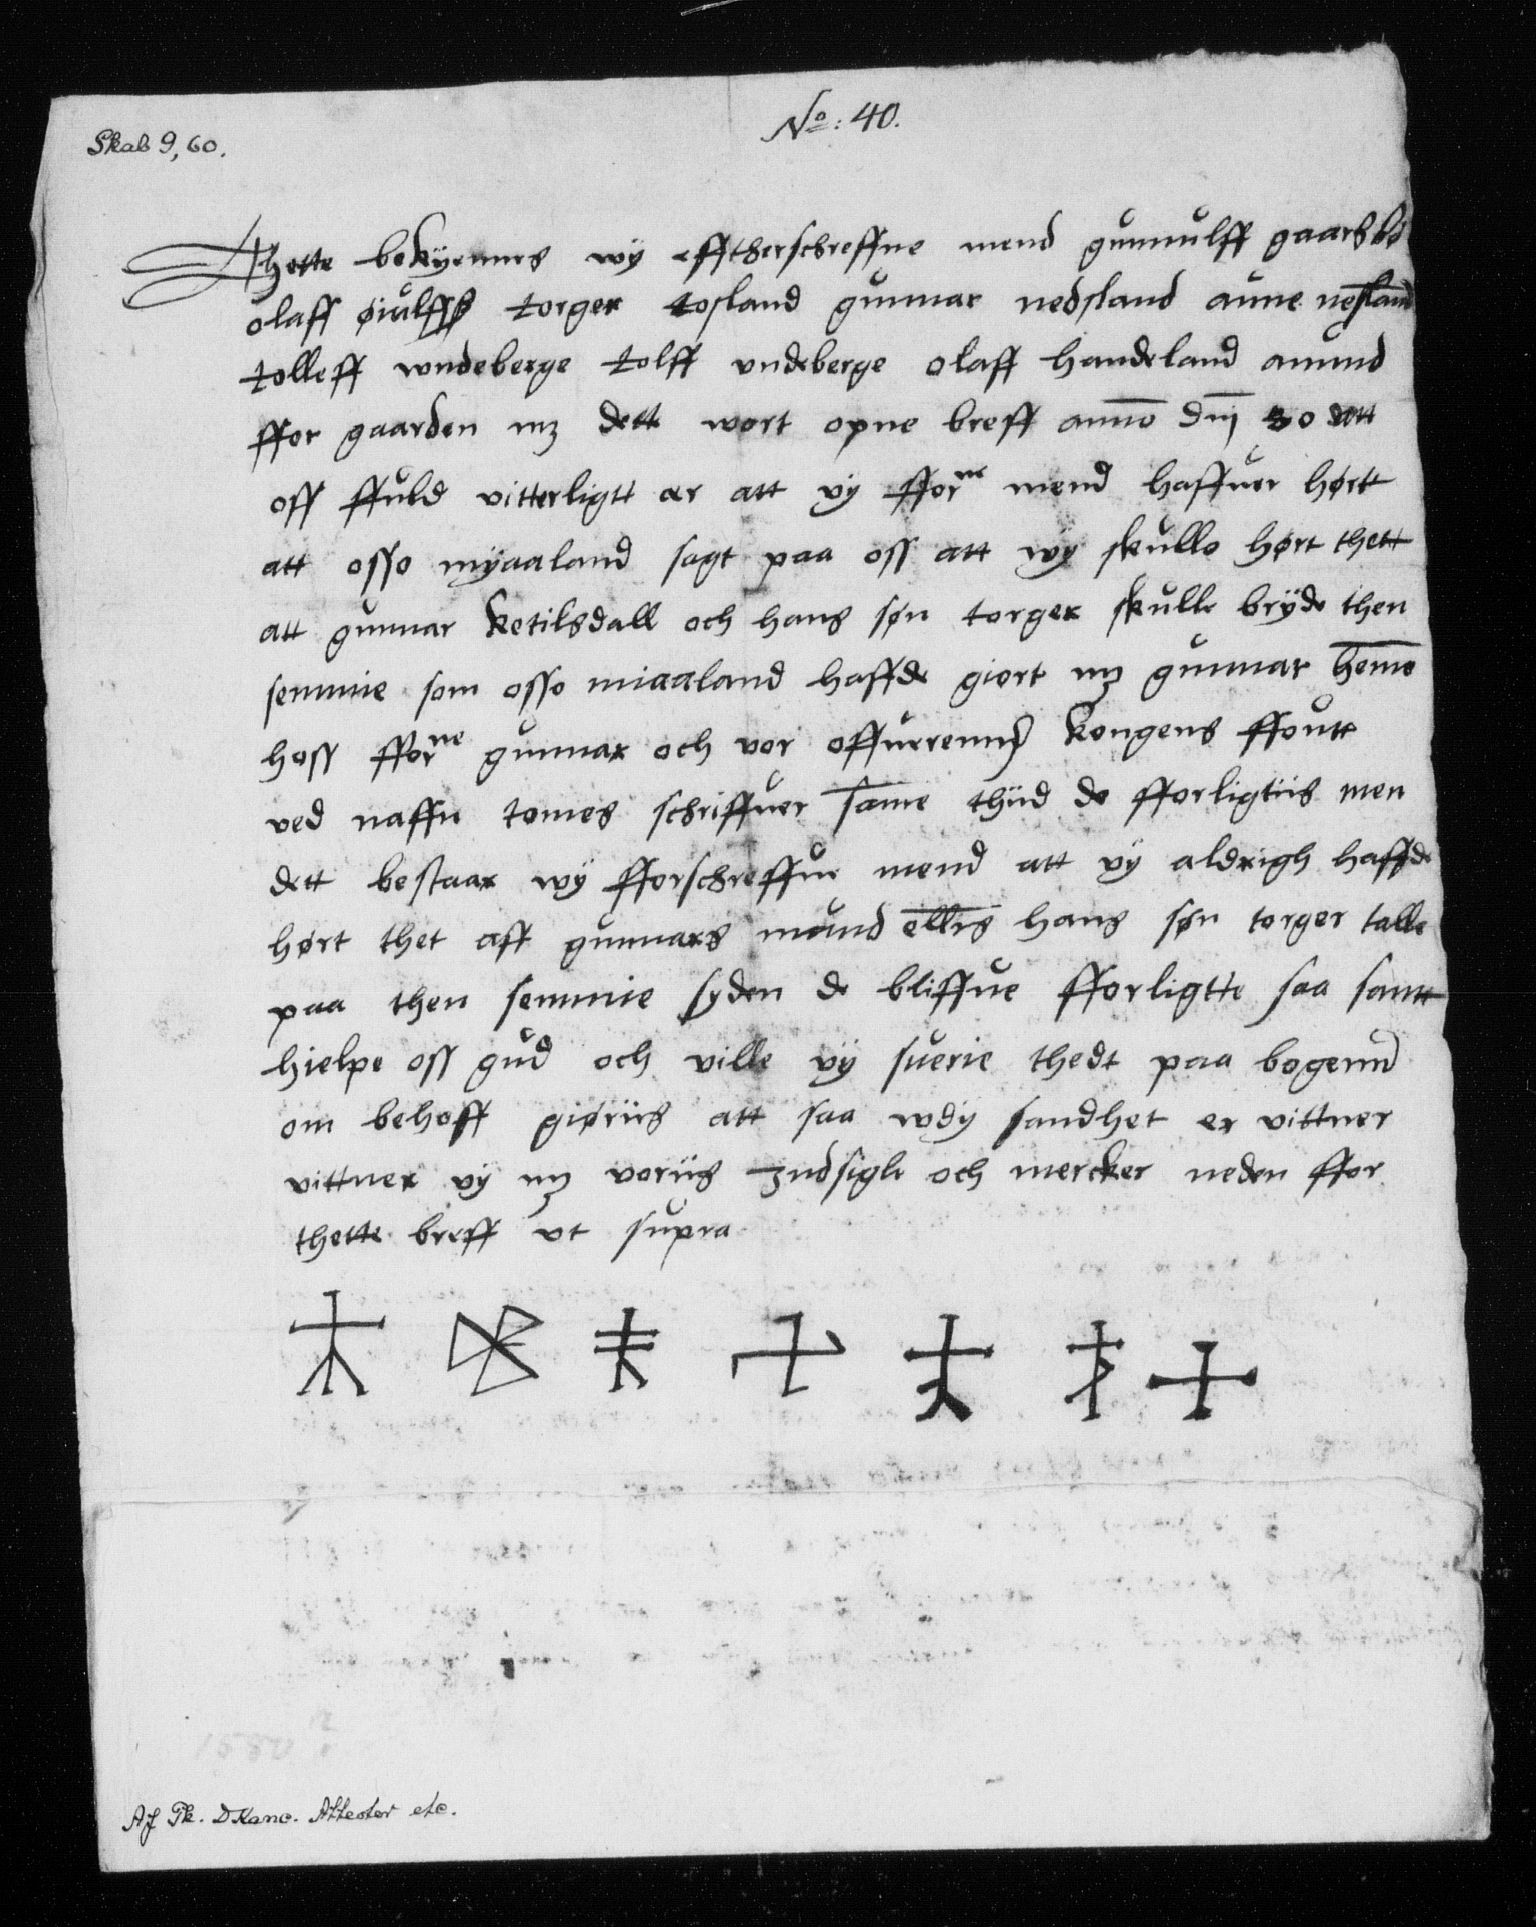 Skab 9,60.
No: 40.
Thette bekyennes wy efftherschreffne mend gunnulff gaarsbø
olaff øiulffß torger tosland gunnar nedsland aune nesland
tolleff wndeberge tolff vndeberge olaff handeland amund
ffor gaarden mz dett wort opne breff anno dnj 30 att
oss ffuld vitterligtt er att vy fforne mend haffuer hørtt
att osso myaaland sagt paa oss att wy skulle hørt thett
att gunnar ketilsdall och hans søn torger skulle bryde then
semmie som osso miaaland haffde giort mz gunnar heme
hoss fforne gunnar och vor offuerrennd kongens ffoutt
ved naffn tomes schriffuer same thiid de fforligtiis men
dett bestaar wy fforschreffne mend att vy aldrigh haffde
hørt thet aff gunnars mund ellers hans søn torger talle
paa then semmie syden de bliffue fforligtte saa santt
hielpe oss gud och ville vy suerie thedt paa bogenn
om behoff giøriis att saa wdy sandhet er vittner
vittner vy mz voriis indsigle och mercker neden ffor
thette breff vt supra
Af Tk. DKanc. Attester etc.